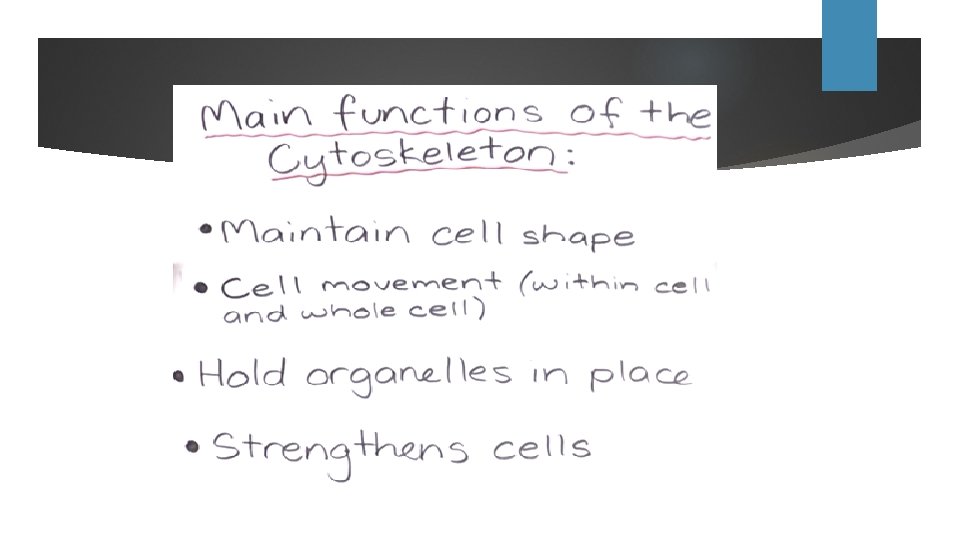 Main functions of the
Cytoskeleton:
• Maintain cell shape
• Cell movement (within cell
and whole cell)
• Hold organelles in place
• Strengthens cells